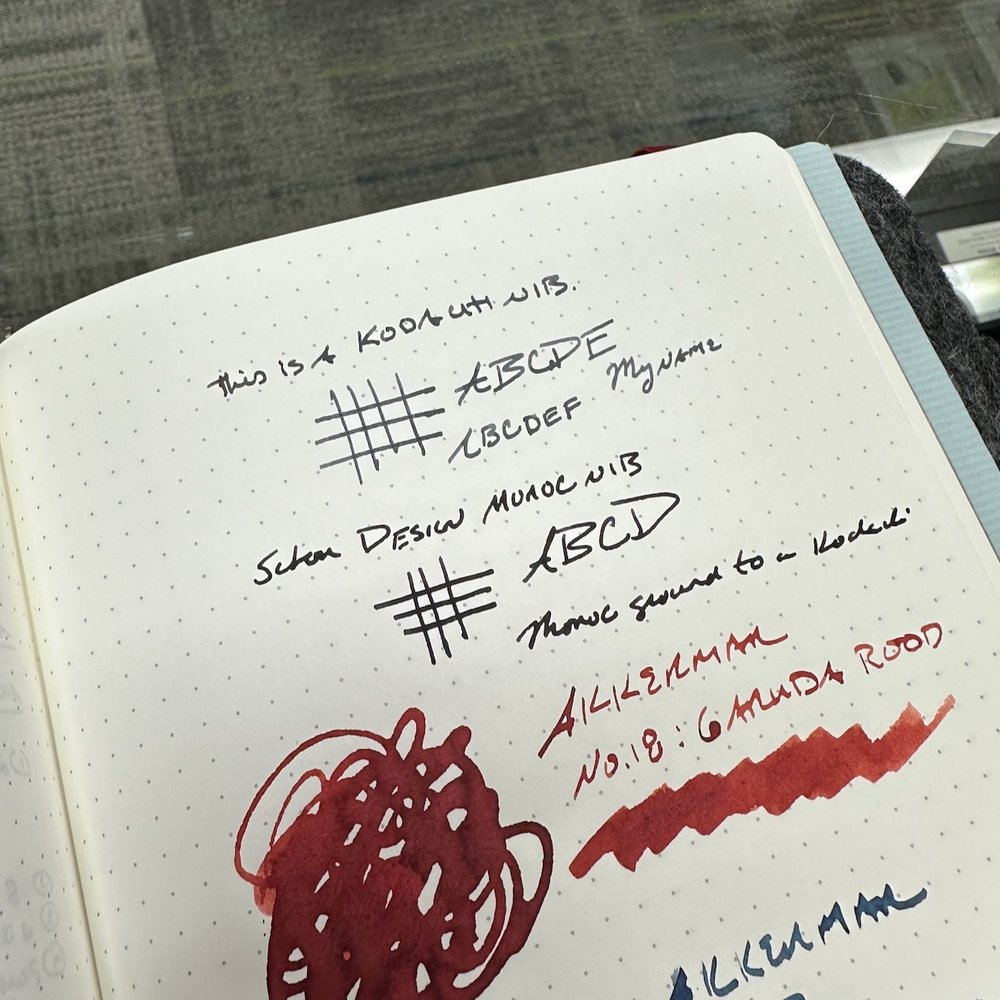 This is A KODACHI NIB.
ABCDE
ABCDEF My NAME
Schon DESIGN MONOC NIB
ABCD
Monoc ground to a Kodachi
AKKERMAN
No.18: GARUDA ROOD
AKKERMAN